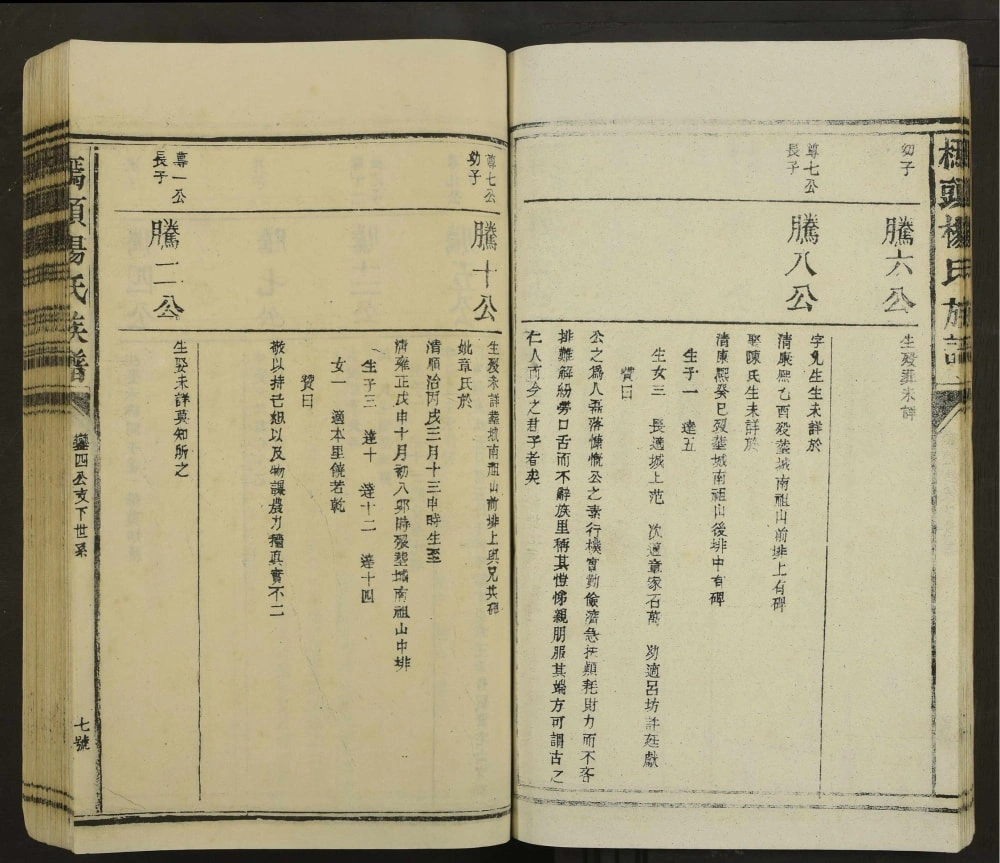 楊氏族譜
幼子
騰六公
生歿葬未詳
尊七公
長子
騰八公
字 生生未詳於
清康熙乙酉歿葬城南祖山前排上有碑
娶陳氏生未詳於
清康熙癸巳歿葬城南祖山後排中有碑
生子一 達五
生女三 長適城上范 次適章家石萬 幼適呂坊許廷獻
贊曰
公之為人磊落慷慨公之素行樸實勤儉濟急扶顛耗財力而不吝
排難解紛勞口舌而不辭族里稱其愷悌親朋服其端方可謂古之
仁人而今之君子者矣
尊七公
幼子
騰十公
生歿未詳葬城南祖山前排上與兄共碑
妣章氏於
清順治丙戌三月十三申時生至
清雍正戊申十月初八卯時歿葬城南祖山中排
生子三 達十 達十二 達十四
女一 適本里饒若乾
贊曰
敬以持己恕以及物讓 力 真實不二
尊一公
長子
騰二公
生娶未詳莫知所之
楊氏族譜
四公支下世系
七號